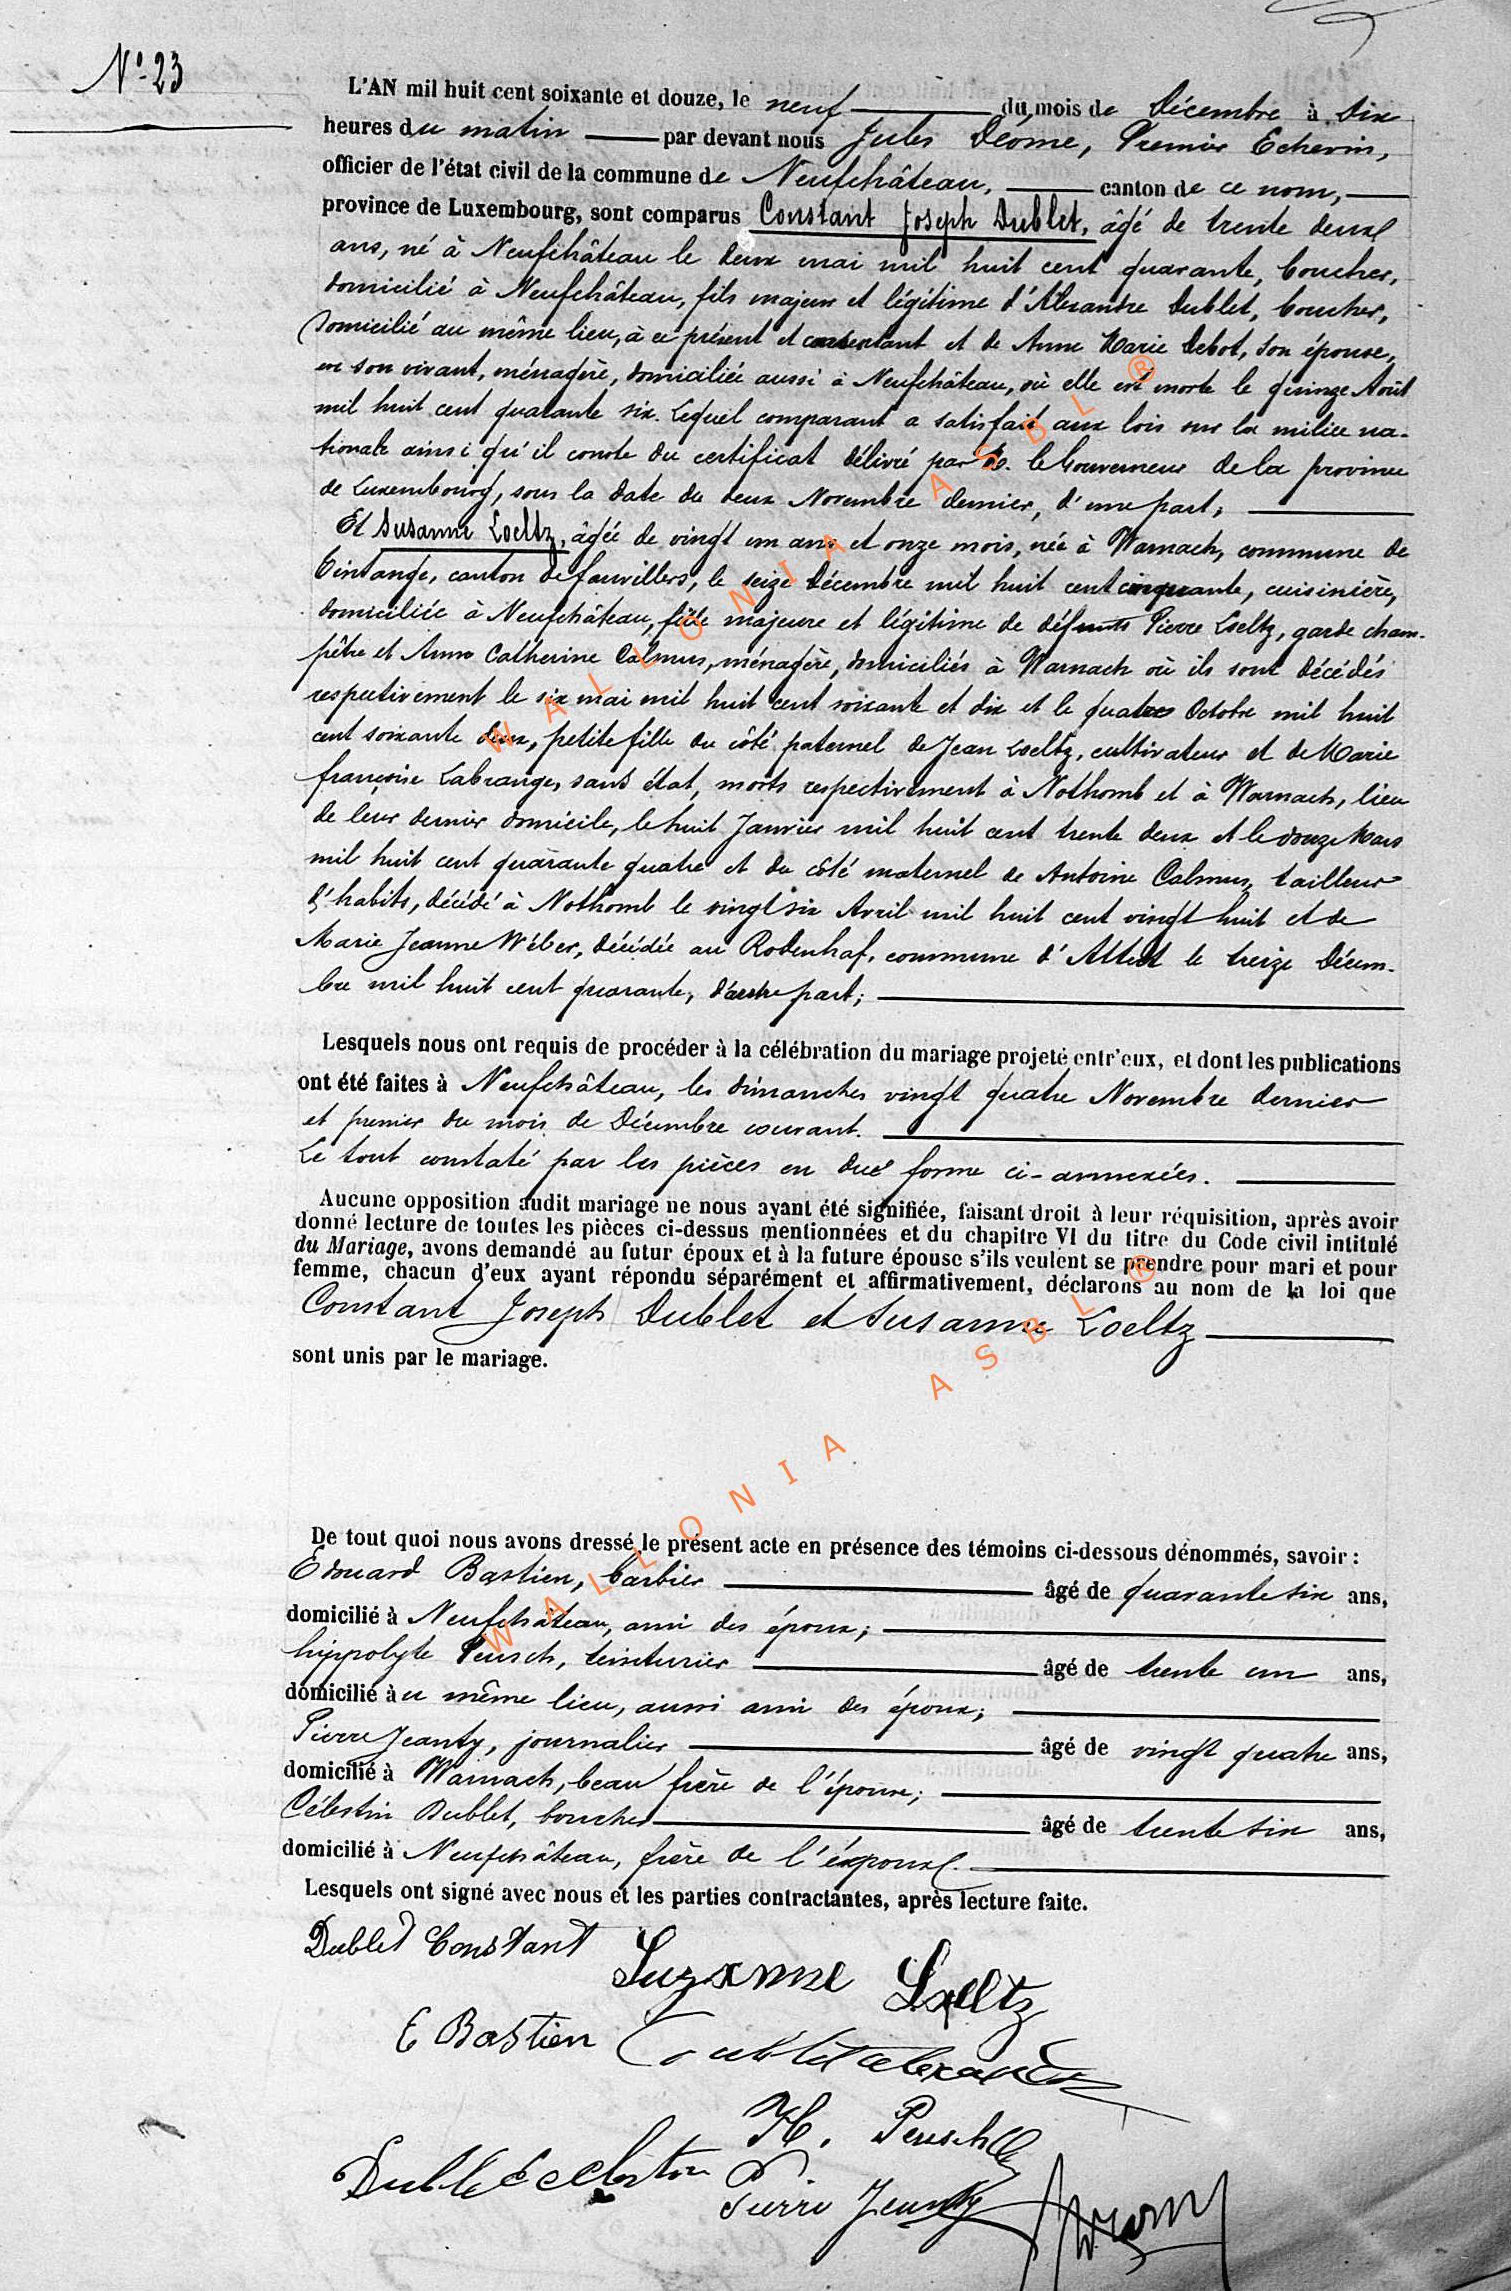 N° 23
L'AN mil huit cent soixante et douze, le neuf du mois de Décembre à dix
heures du matin par devant nous Jules Déome, Premier Echevin,
officier de l'état civil de la commune de Neufchâteau, canton de ce nom,
province de Luxembourg, sont comparus Constant Joseph Dublet, âgé de trente deux
ans, né à Neufchâteau le deux mai mil huit cent quarante, boucher,
domicilié à Neufchâteau, fils majeur et légitime d'Alexandre Dublet, boucher,
domicilié au même lieu, à ce présent et consentant et de Anne Marie Debot, son épouse,
en son vivant, ménagère, domiciliée aussi à Neufchâteau, où elle est morte le quinze Août
mil huit cent quarante six. Lequel comparant a satisfait aux lois sur la milice na-
tionale ainsi qu'il conste du certificat délivré par M. le Gouverneur de la province
de Luxembourg, sous la date du deux Novembre dernier, d'une part;
Et Susanne Loeltz, âgée de vingt un ans et onze mois, née à Warnach, commune de
Tintange, canton de fauvillers, le seize Décembre mil huit cent cinquante, cuisinière,
domiciliée à Neufchâteau, fille majeure et légitime de défunts Pierre Loeltz, garde cham-
pêtre et Anne Catherine Calmus, ménagère, domiciliés à Warnach où ils sont décédés
respectivement le six mai mil huit cent soixante et dix et le quatre Octobre mil huit
cent soixante deux, petite fille du côté paternel de Jean Loeltz, cultivateur et de Marie
françoise Labrange, sans état, morts respectivement à Nothomb et à Warnach, lieu
de leur dernier domicile, le huit Janvier mil huit cent trente deux et le douze Mars
mil huit cent quarante quatre et du côté maternel de Antoine Calmus, tailleur
d'habits, décédé à Nothomb le vingt six Avril mil huit cent vingt huit et de
Marie Jeanne Wéber, décédée au Rodenhof, commune d'Attert le treize Décem-
bre mil huit cent quarante, d'autre part;
Lesquels nous ont requis de procéder à la célébration du mariage projeté entr'eux, et dont les publications
ont été faites à Neufchâteau, les dimanches vingt quatre Novembre dernier
et premier du mois de Décembre courant.
Le tout constaté par les pièces en due forme ci-annexées.
Aucune opposition audit mariage ne nous ayant été signifiée, faisant droit à leur réquisition, après avoir
donné lecture de toutes les pièces ci-dessus mentionnées et du chapitre VI du titre du Code civil intitulé
du Mariage, avons demandé au futur époux et à la future épouse s'ils veulent se prendre pour mari et pour
femme, chacun d'eux ayant répondu séparément et affirmativement, déclarons au nom de la loi que
Constant Joseph Dublet et Susanne Loeltz
sont unis par le mariage.
De tout quoi nous avons dressé le présent acte en présence des témoins ci-dessous dénommés, savoir :
Edouard Bastien, barbier âgé de quarante six ans,
domicilié à Neufchâteau, ami des époux;
hippolyte Peusch, teinturier âgé de trente un ans,
domicilié au même lieu, aussi ami des époux;
Pierre Jeanty, journalier âgé de vingt quatre ans,
domicilié à Warnach, beau frère de l'épouse;
Célestin Dublet, boucher âgé de trente six ans,
domicilié à Neufchâteau, frère de l'époux.
Lesquels ont signé avec nous et les parties contractantes, après lecture faite.
Dublet Constant
Suzanne Loeltz
E Bastien
Dublet alexandre
H. Peusch
Dublet Celestin
Pierre Jeanty
WALLONIA ASBL ®
WALLONIA ASBL ®